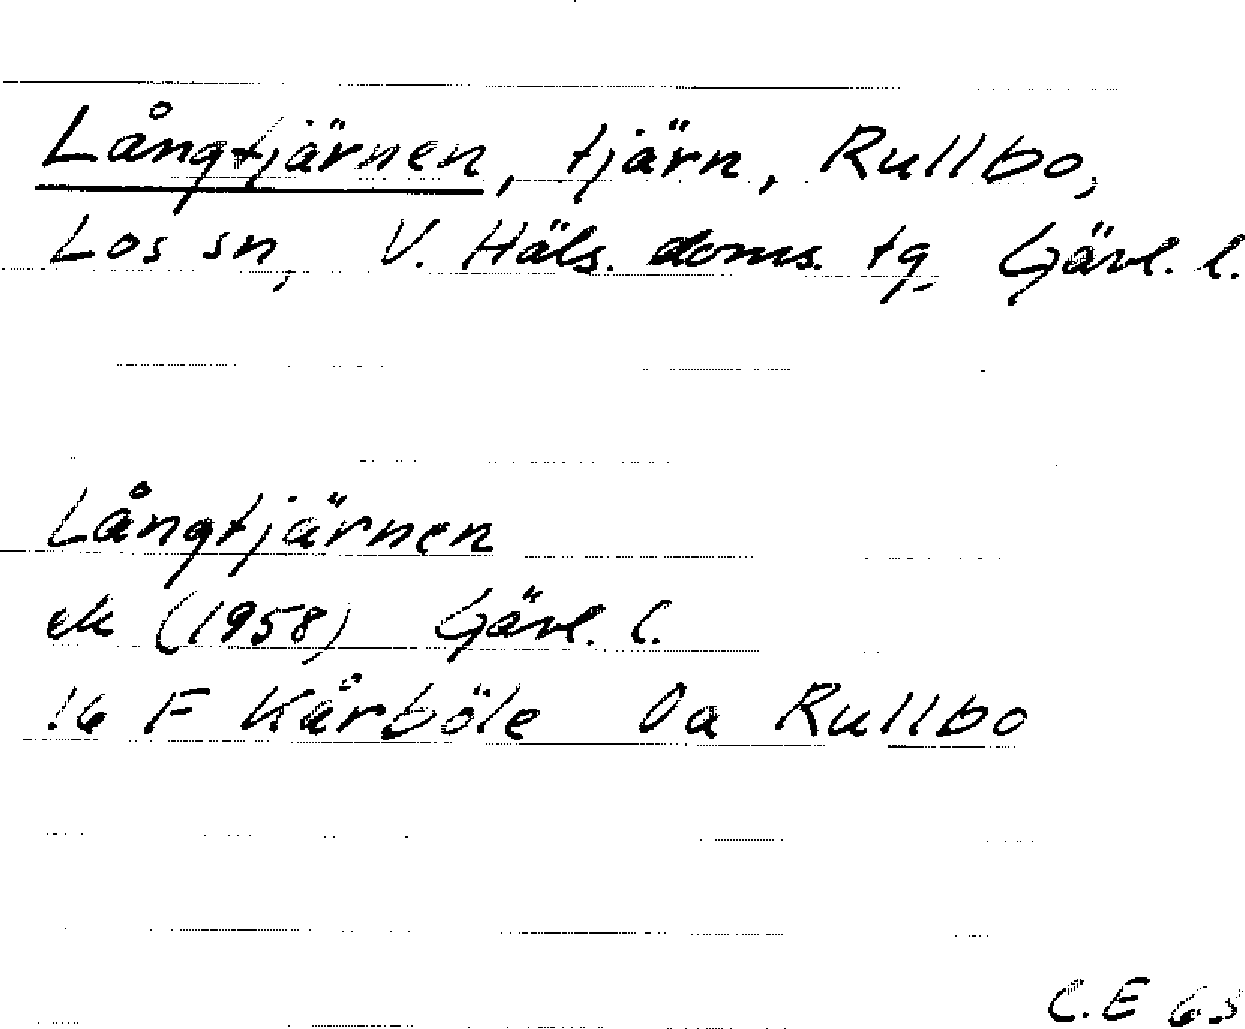 Långtjärnen, tjärn, Rullbo,
Los sn, V. Häls. doms. tg. Gävl. l.
Långtjärnen
ek (1958) Gävl. l.
16 F Kårböle 0a Rullbo
C.E 65